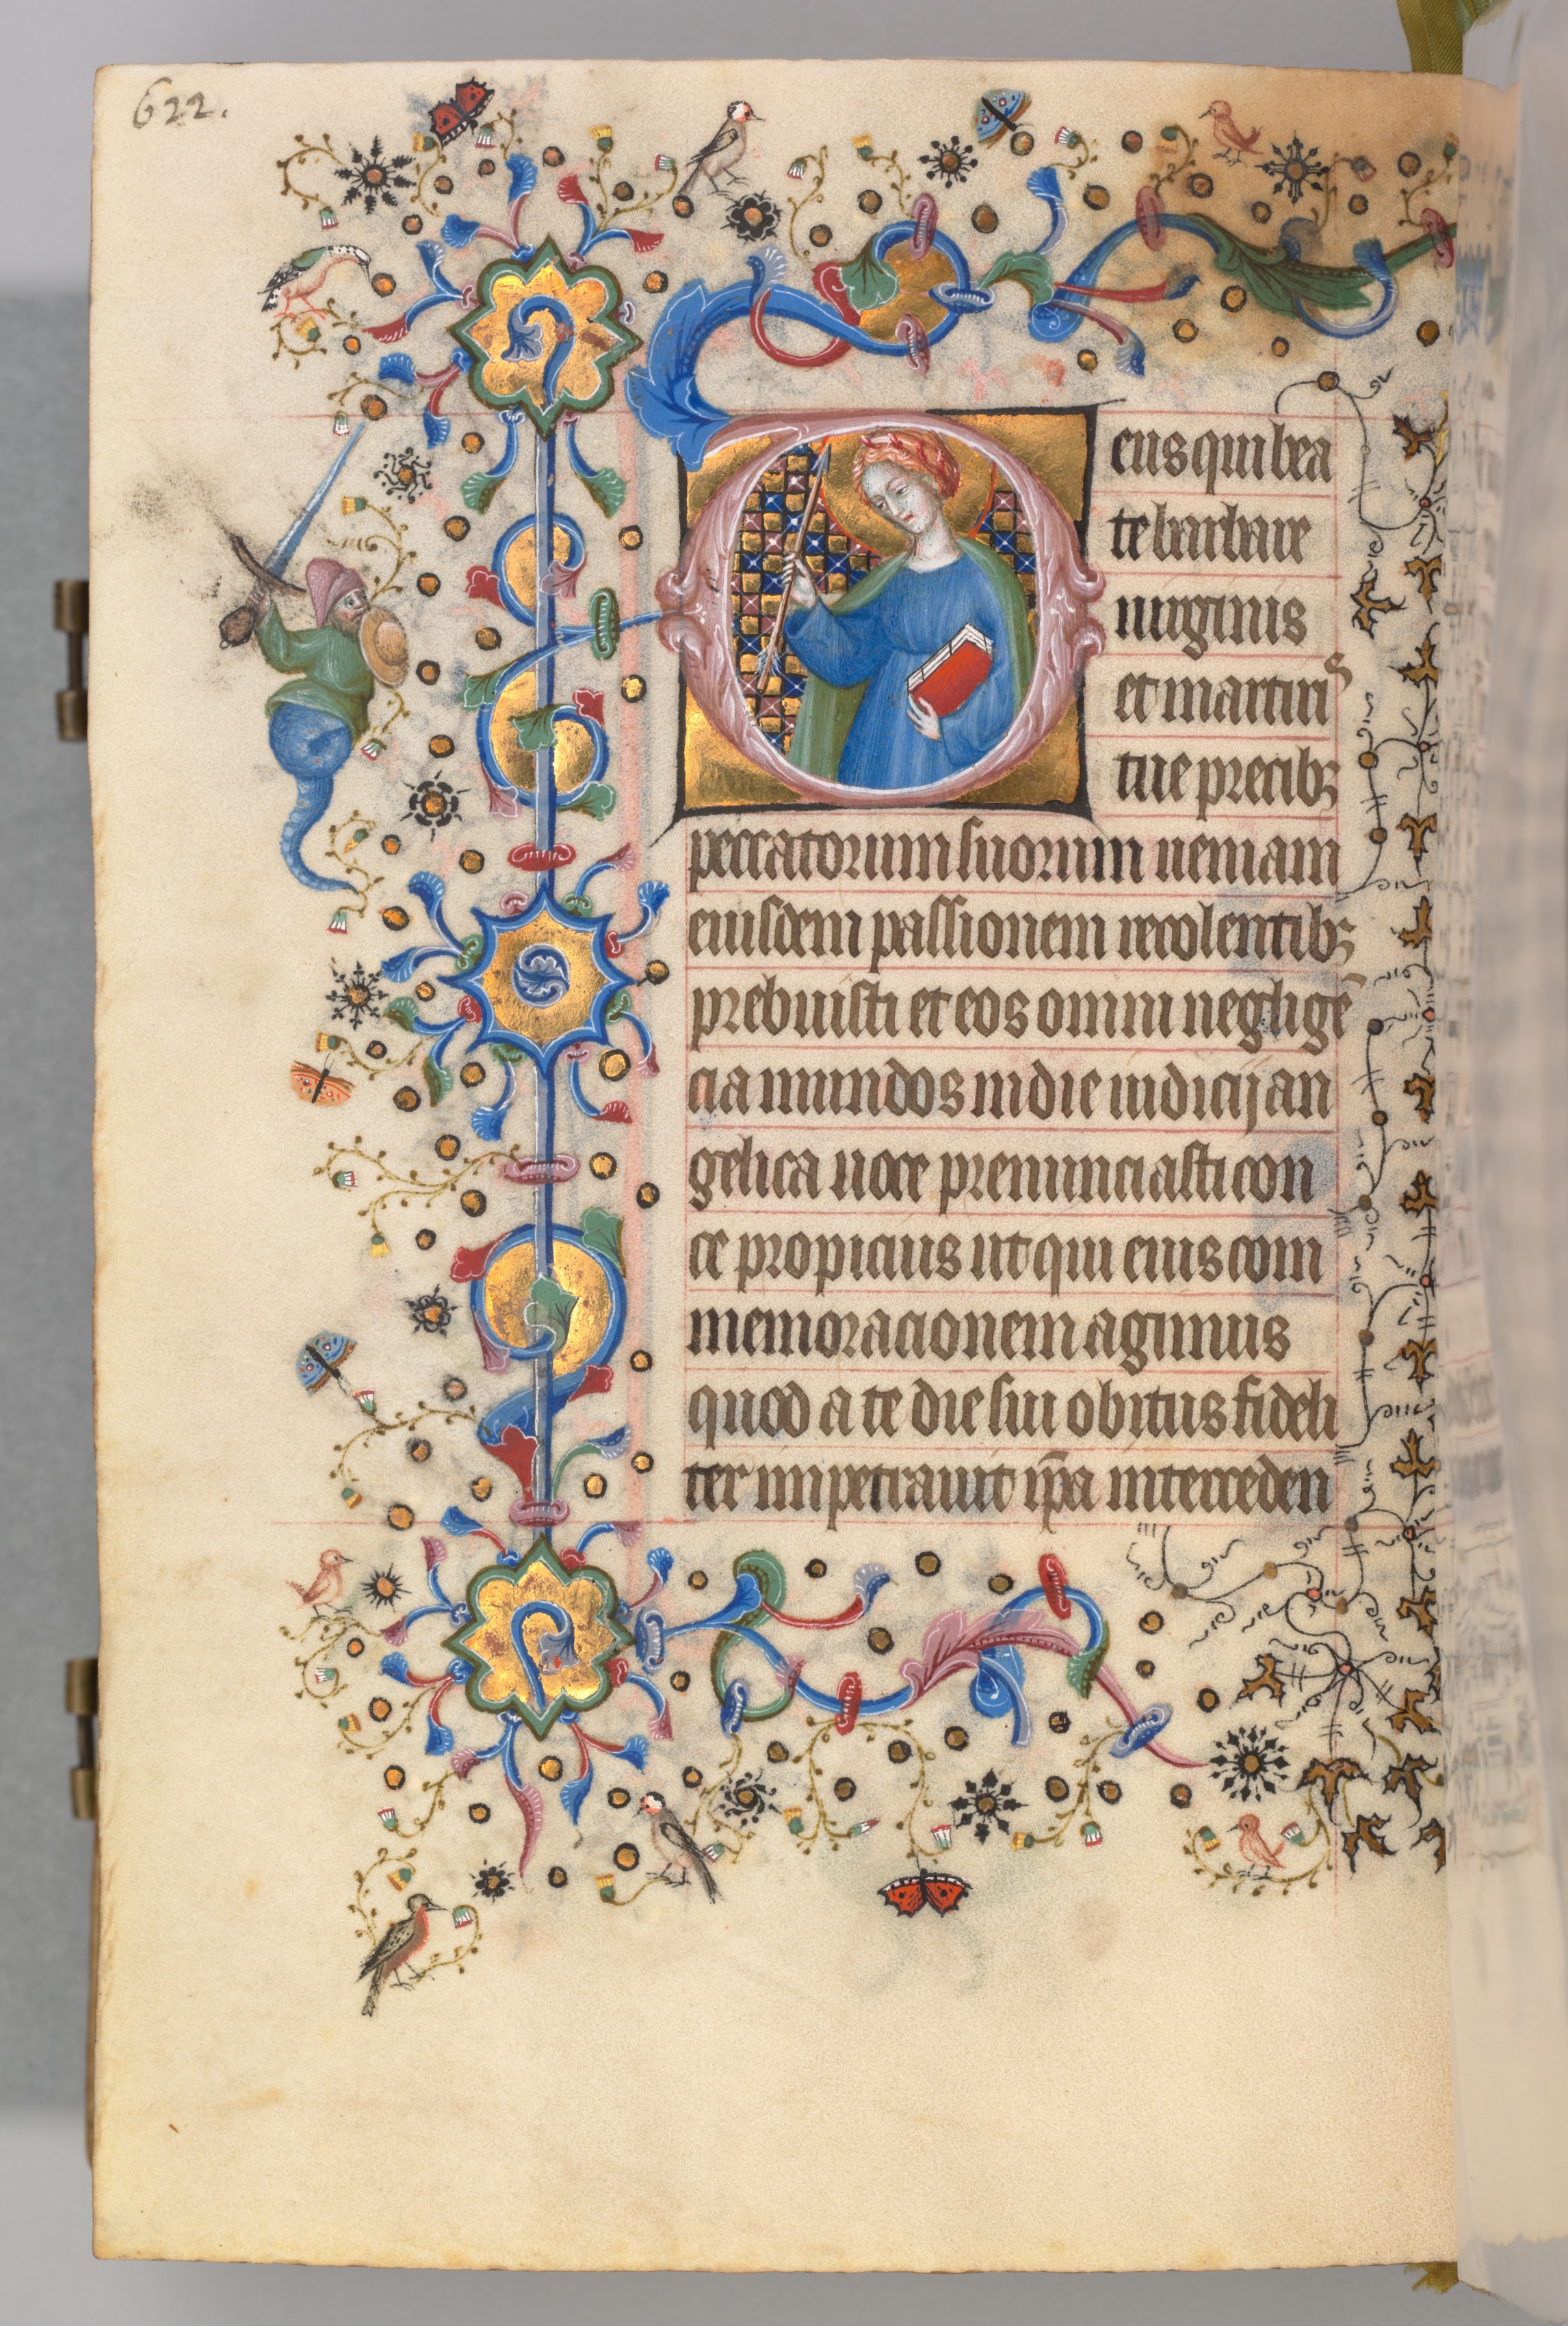 622.
Deus qui bea
te barbare
uirginis
et martiris
tue precibꝫ
peccatorum suorum ueniam
eiusdem passionem recolentibꝫ
prebuisti et eos omni negligē
cia mundos in die iudicij an
gelica uoce prenunciasti con
ce propicius ut qui eius com
memoracionem agimus
quod a te die sui obitus fideli
ter impetrauit ip̄a interceden